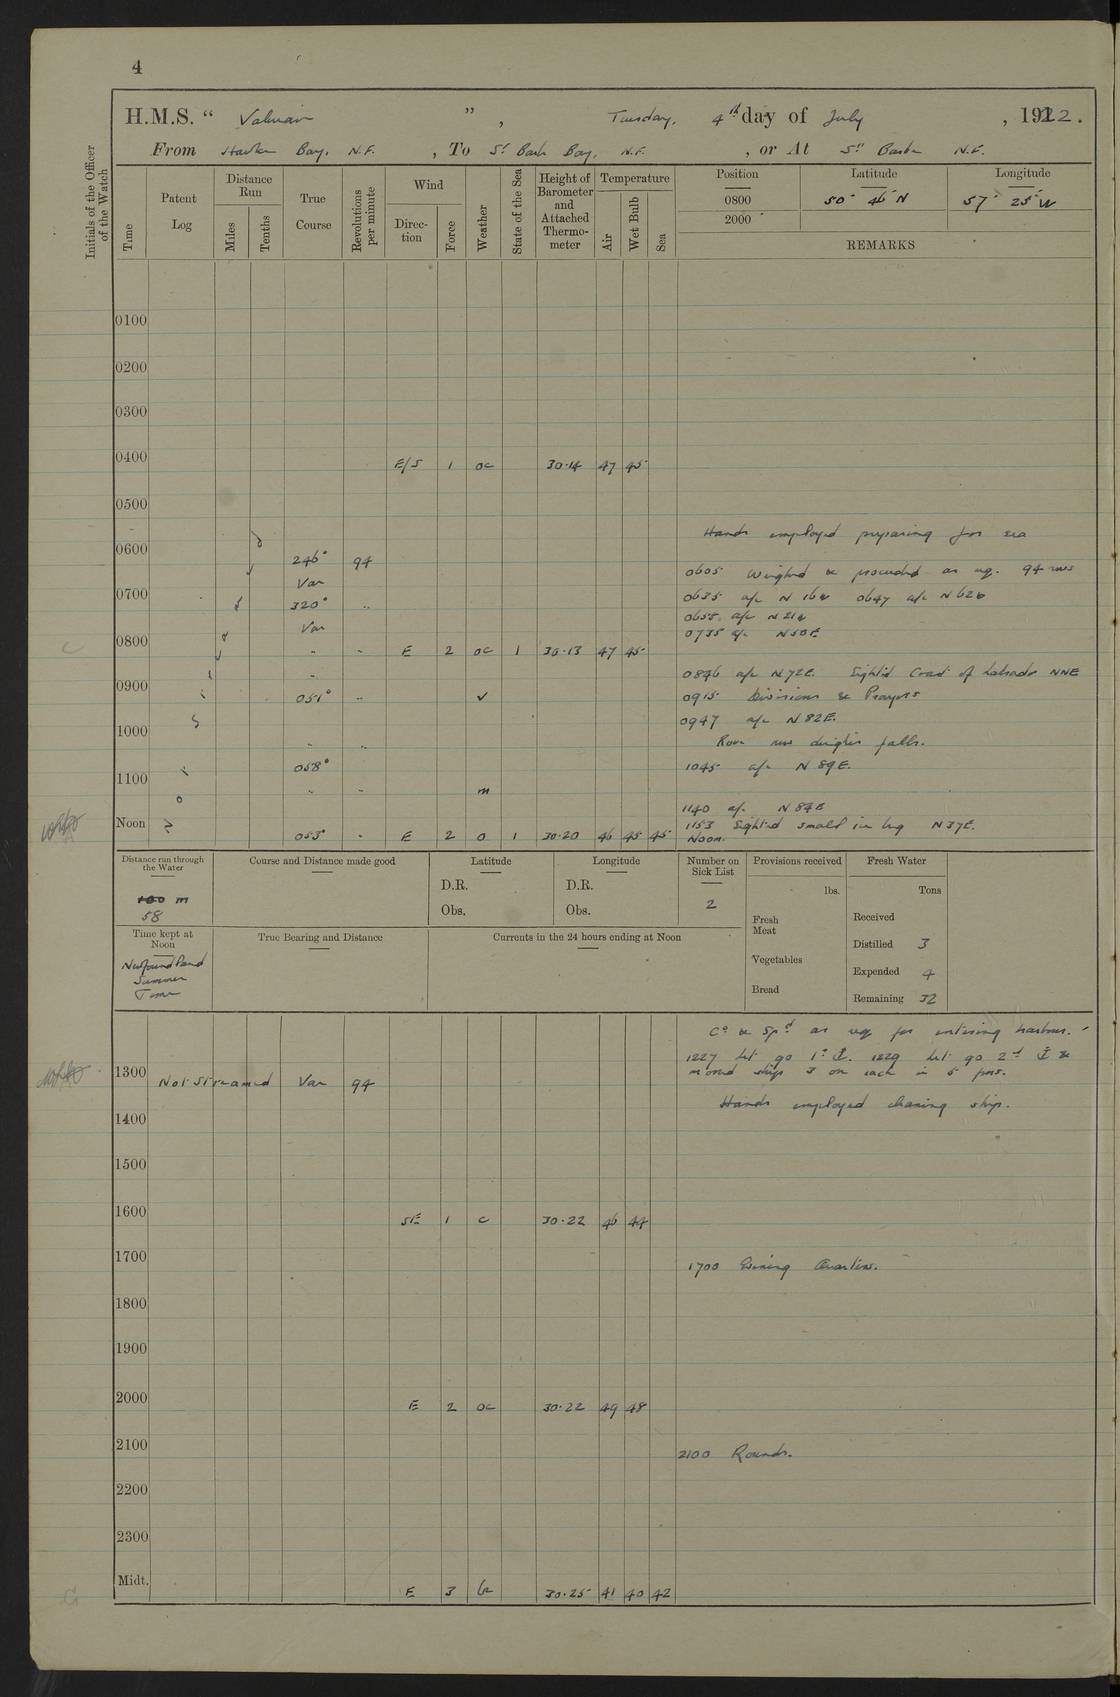 4
H.M.S. " Valerian " , Tuesday, 4th day of July , 1922.
From Hawke Bay, N.F. , To St Barbe Bay, N.F. , or At St Barbe N.F.
Initials of the Officer of the Watch
Time
Patent Log
Distance Run
Miles
Tenths
True Course
Revolutions per minute
Wind
Direction
Force
Weather
State of the Sea
Height of Barometer and Attached Thermometer
Temperature
Air
Wet Bulb
Sea
Position
0800
2000
Latitude
50° 46' N
Longitude
57° 25' W
REMARKS
0100
0200
0300
0400 E/S 1 oc 30.14 47 45
0500
Hands employed preparing for sea
0600
246° 94
0605 Weighed & proceeded as req. 94 revs
Var
0700 320° "
0635 a/c N 16 0647 a/c N 62
0655 a/c N 21
Var
0735 a/c N 50 E
0800 " " E 2 oc 1 30.13 47 45
0846 a/c N 72 E. Sighted Coast of Labrador NNE
"
0900 051° " v
0915 Divisions & Prayers
0947 a/c N 82 E.
1000 " "
falls.
058°
1045 a/c N 89 E.
1100 " " m
1140 a/c N 84 E
1153 Sighted small N 37 E.
Noon 053° " E 2 o 1 30.20 46 45 45
Noon.
Distance run through the Water
100 m
58
Course and Distance made good
Latitude
D.R.
Obs.
Longitude
D.R.
Obs.
Number on Sick List
2
Provisions received
lbs.
Fresh Meat
Vegetables
Bread
Fresh Water
Tons
Received
Distilled 3
Expended 4
Remaining 32
Time kept at Noon
Newfoundland
Summer
Time
True Bearing and Distance
Currents in the 24 hours ending at Noon
Co & Spd as req for entering harbour.
1227 Let go 1st ⚓. 1229 Let go 2nd ⚓ &
moored ship 3 on each in 5 fms.
1300 Not Streamed Var 94
Hands employed cleaning ship.
1400
1500
1600 SE 1 c 30.22 46 44
1700
1700 Evening Quarters.
1800
1900
2000 E 2 oc 30.22 49 48
2100
2100 Rounds.
2200
2300
Midt. E 3 bc 30.25 41 40 42